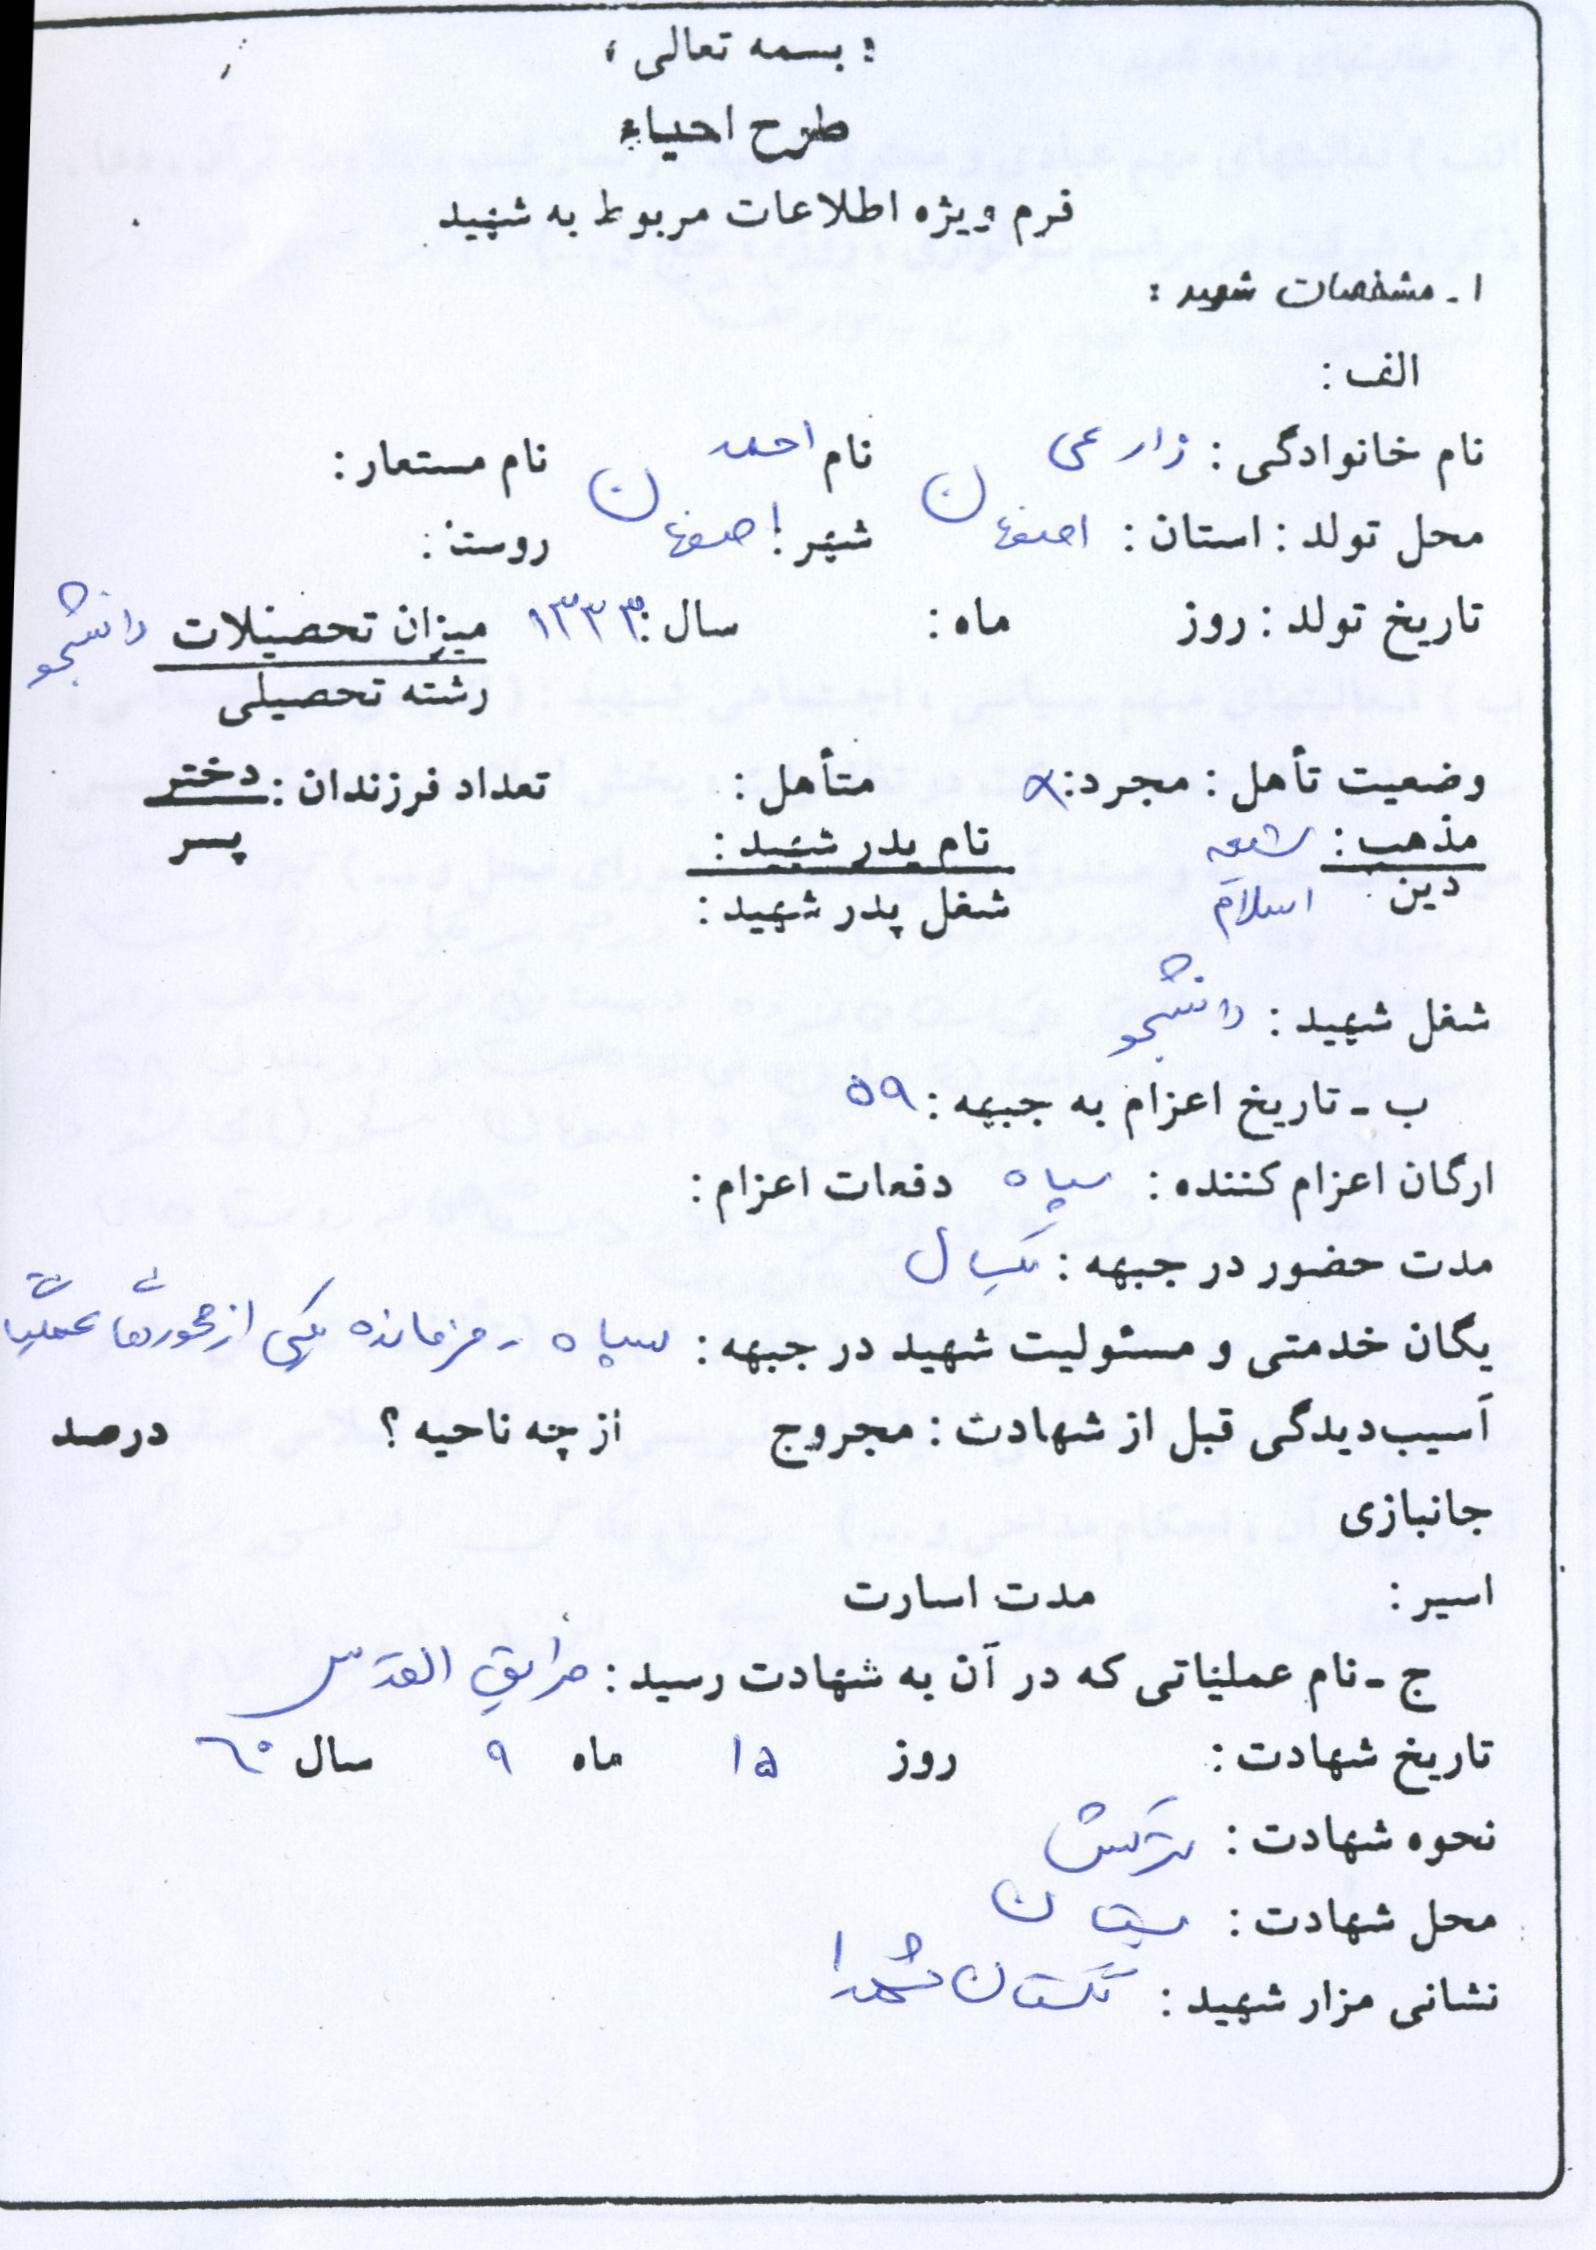 : بسمه تعالی ،
طرح احیاء
فرم ویژه اطلاعات مربوط به شهید
۱ ـ مشخصات شهید :
الف :
نام خانوادگی : زارعی نام احمد نام مستعار :
محل تولد : استان : اصفهان شهر : اصفهان روستا :
تاریخ تولد : روز ماه : سال : ۱۳۳۳ میزان تحصیلات دانشجو
رشته تحصیلی
وضعیت تأهل : مجرد : × متأهل : تعداد فرزندان : دختر
پسر
مذهب : شیعه نام پدر شهید :
دین اسلام شغل پدر شهید :
شغل شهید : دانشجو
ب ـ تاریخ اعزام به جبهه : ۵۹
ارگان اعزام کننده : سپاه دفعات اعزام :
مدت حضور در جبهه : یکسال
یگان خدمتی و مسئولیت شهید در جبهه : سپاه - فرمانده یکی از محورهای عملیاتی
آسیب‌دیدگی قبل از شهادت : مجروح از چه ناحیه ؟ درصد
جانبازی
اسیر : مدت اسارت
ج ـ نام عملیاتی که در آن به شهادت رسید : طریق القدس
تاریخ شهادت : روز ۱۵ ماه ۹ سال ۶۰
نحوه شهادت : ترکش
محل شهادت : بستان
نشانی مزار شهید : گلستان شهدا